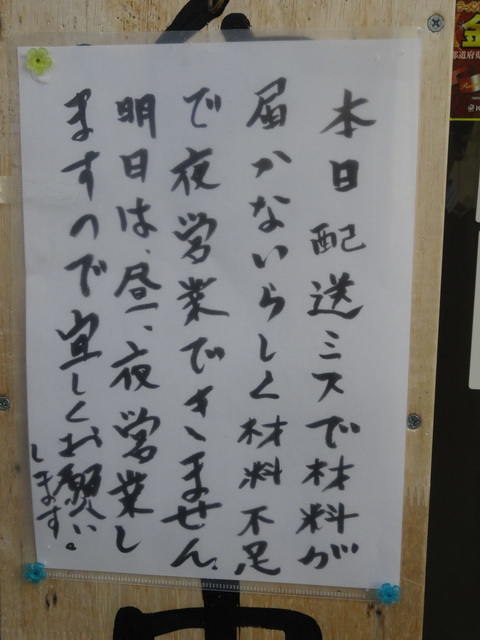 本日配送ミスで材料が
届かないらしく材料不足
で夜営業できません。
明日は、昼、夜営業し
ますので宜しくお願い
します。